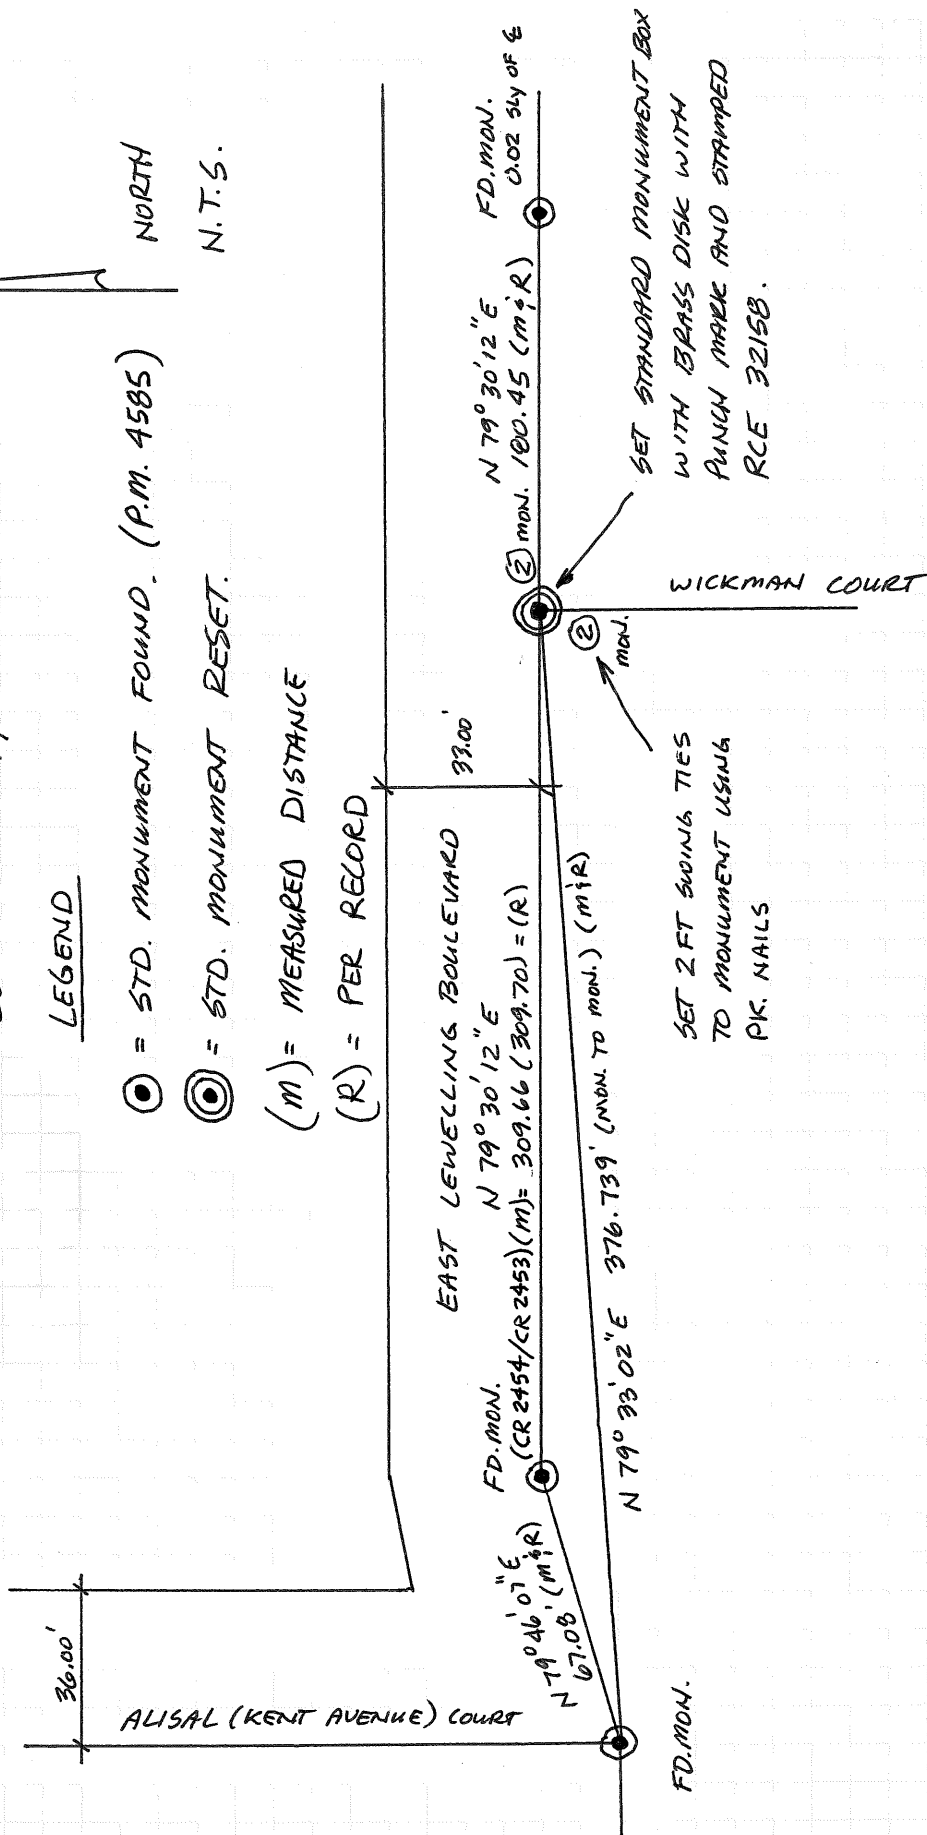 LEGEND
= STD. MONUMENT FOUND. (P.M. 4585)
= STD. MONUMENT RESET.
(M) = MEASURED DISTANCE
(R) = PER RECORD
NORTH
N.T.S.
36.00'
ALISAL (KENT AVENUE) COURT
EAST LEWELLING BOULEVARD
33.00'
FD. MON.
N 79° 30' 12" E
(CR 2454/CR 2453)(M)= 309.66 (309.70) = (R)
N 79° 46' 07" E
67.08' (M&R)
N 79° 33' 02" E 376.739' (MON. TO MON.) (M&R)
FD. MON.
N 79° 30' 12" E
② MON. 180.45 (M&R)
FD. MON.
0.02 SLY OF ℄
② MON.
WICKMAN COURT
SET 2 FT SWING TIES
TO MONUMENT USING
PK. NAILS
SET STANDARD MONUMENT BOX
WITH BRASS DISK WITH
PUNCH MARK AND STAMPED
RCE 32158.